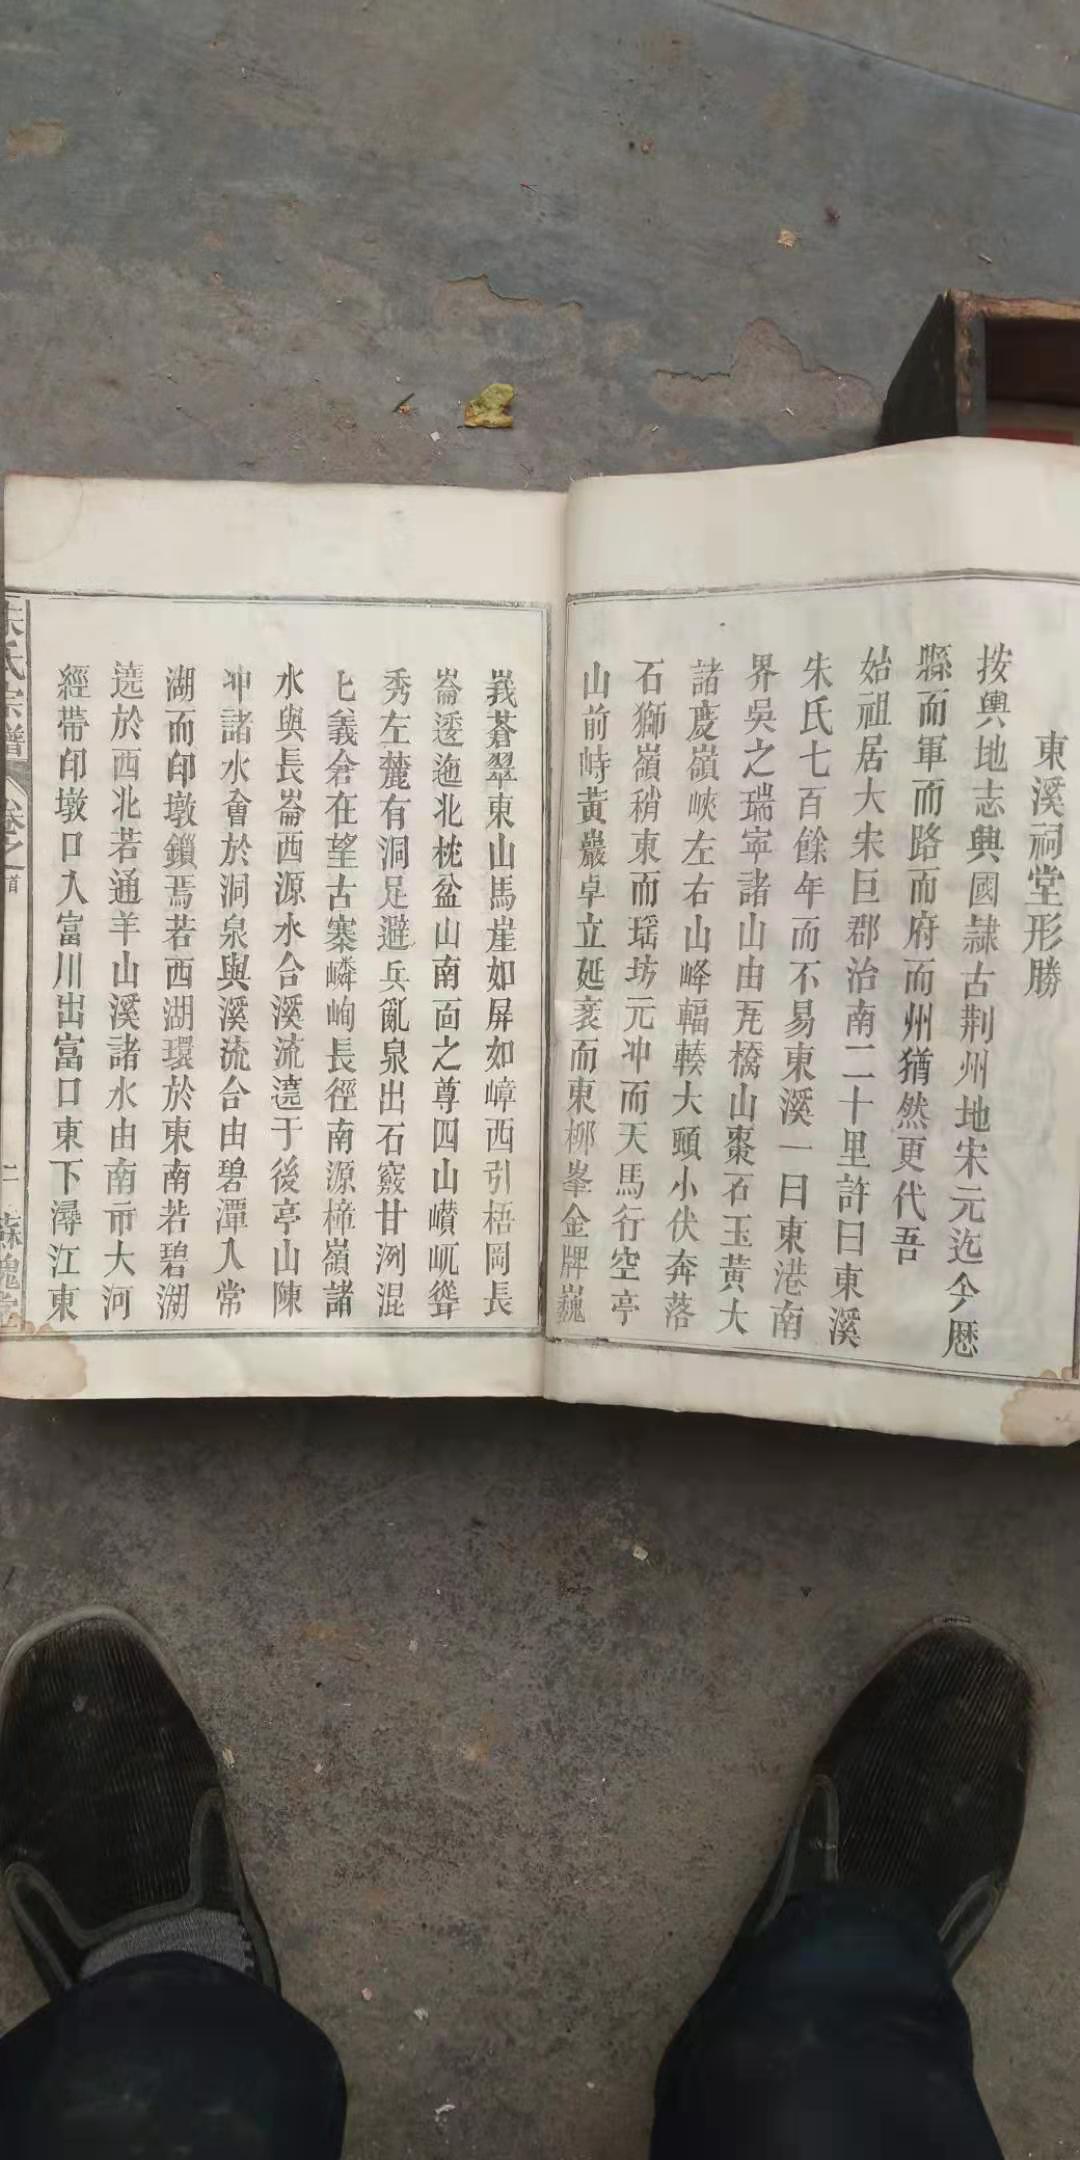 東溪祠堂形勝
按輿地志興國隷古荆州地宋元迄今歷
縣而軍而路而府而州猶然更代吾
始祖居大朱巨郡治南二十里許曰東溪
朱氏七百餘年而不易東溪一曰東港南
界吳之瑞寧諸山由瓦橋山棗石玉黃大
諸慶嶺峽左右山峰輻輳大頤小伏奔落
石獅嶺稍東而瑶坊元冲而天馬行空亭
山前峙黃巖卓立延袤而東柳峯金牌巍
峩蒼翠東山馬崖如屏如嶂西引梧岡長
崙逶迤北枕盆山南面之尊四山巑岏聳
秀左麓有洞足避兵亂泉出石竅甘冽混
七義倉在望古寨嶙峋長徑南源樟嶺諸
水與長崙西源水合溪流遶于後亭山陳
冲諸水會於洞泉與溪流合由碧潭入常
湖而印墩鎖焉若西湖環於東南若碧湖
遶於西北若通羊山溪諸水由南帀大河
經帶印墩口入富川出富口東下潯江東
朱氏宗譜 卷之首 二